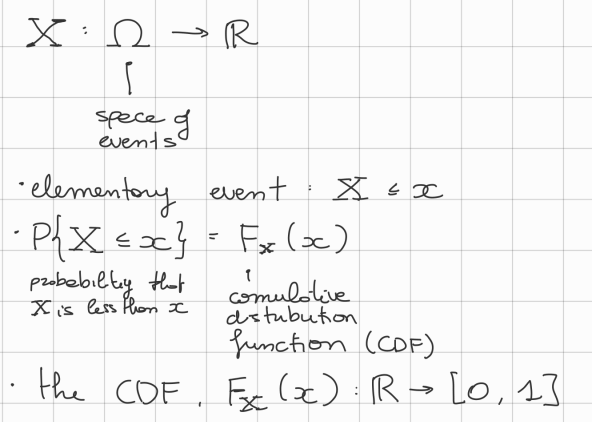 X : Ω → ℝ
space of
events
· elementary event : X ≤ x
· P{X ≤ x} = Fx (x)
probability that
X is less then x
comulative
distubution
function (CDF)
· the CDF, Fx (x) : ℝ → [0, 1]